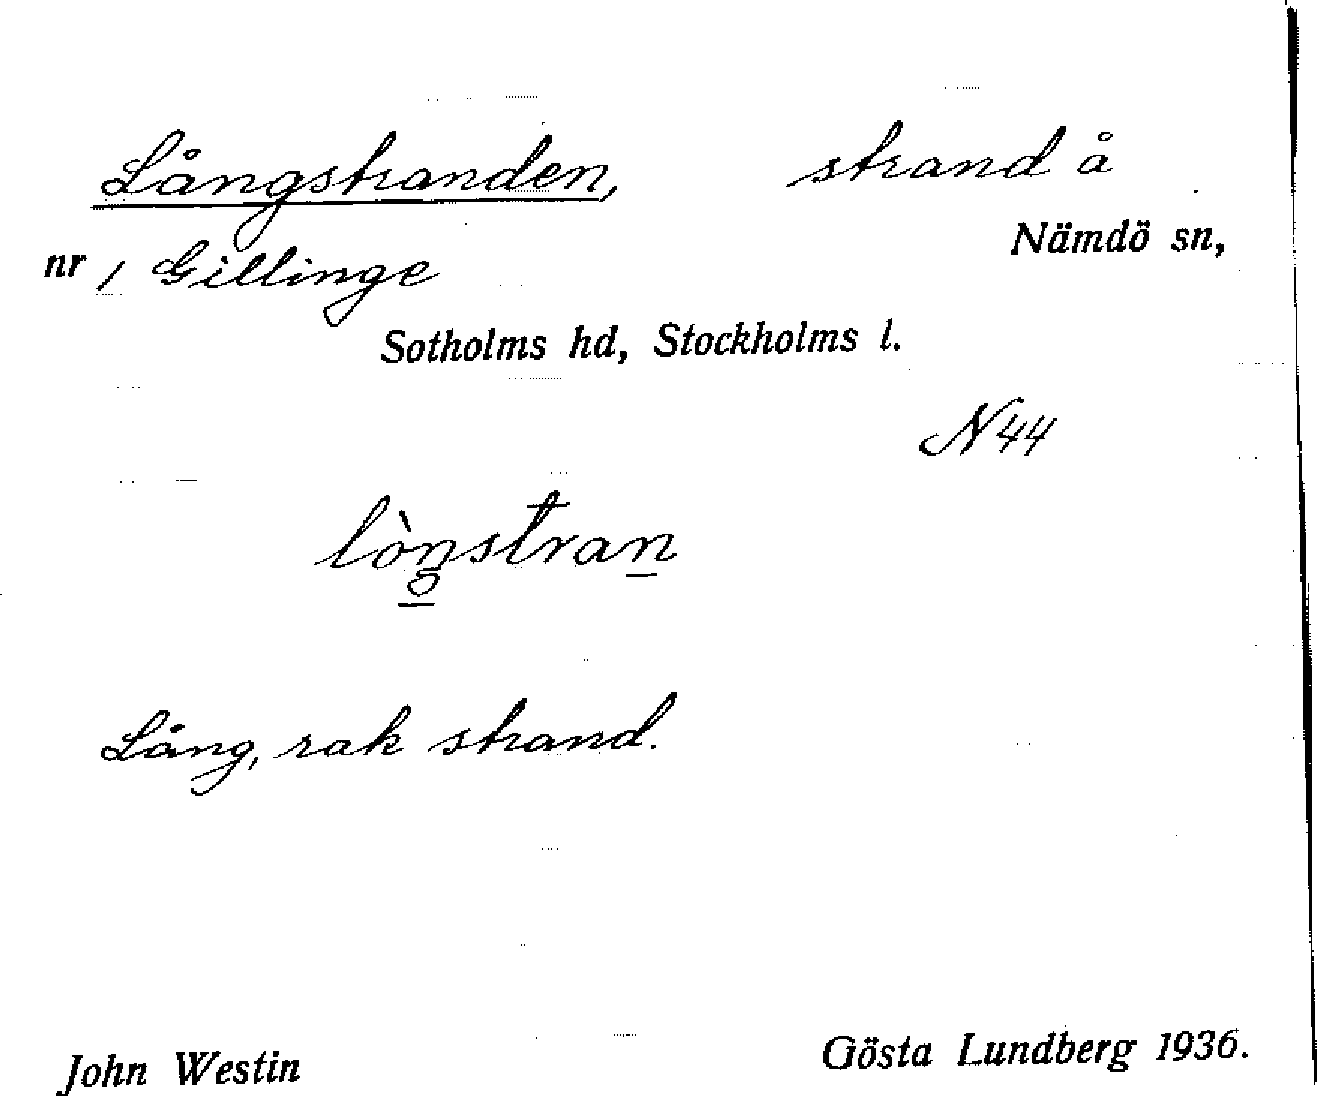 Långstranden, strand å
Nämdö sn,
nr 1 Gillinge
Sotholms hd, Stockholms l.
N 44
lòŋstran
Lång, rak strand.
John Westin Gösta Lundberg 1936.